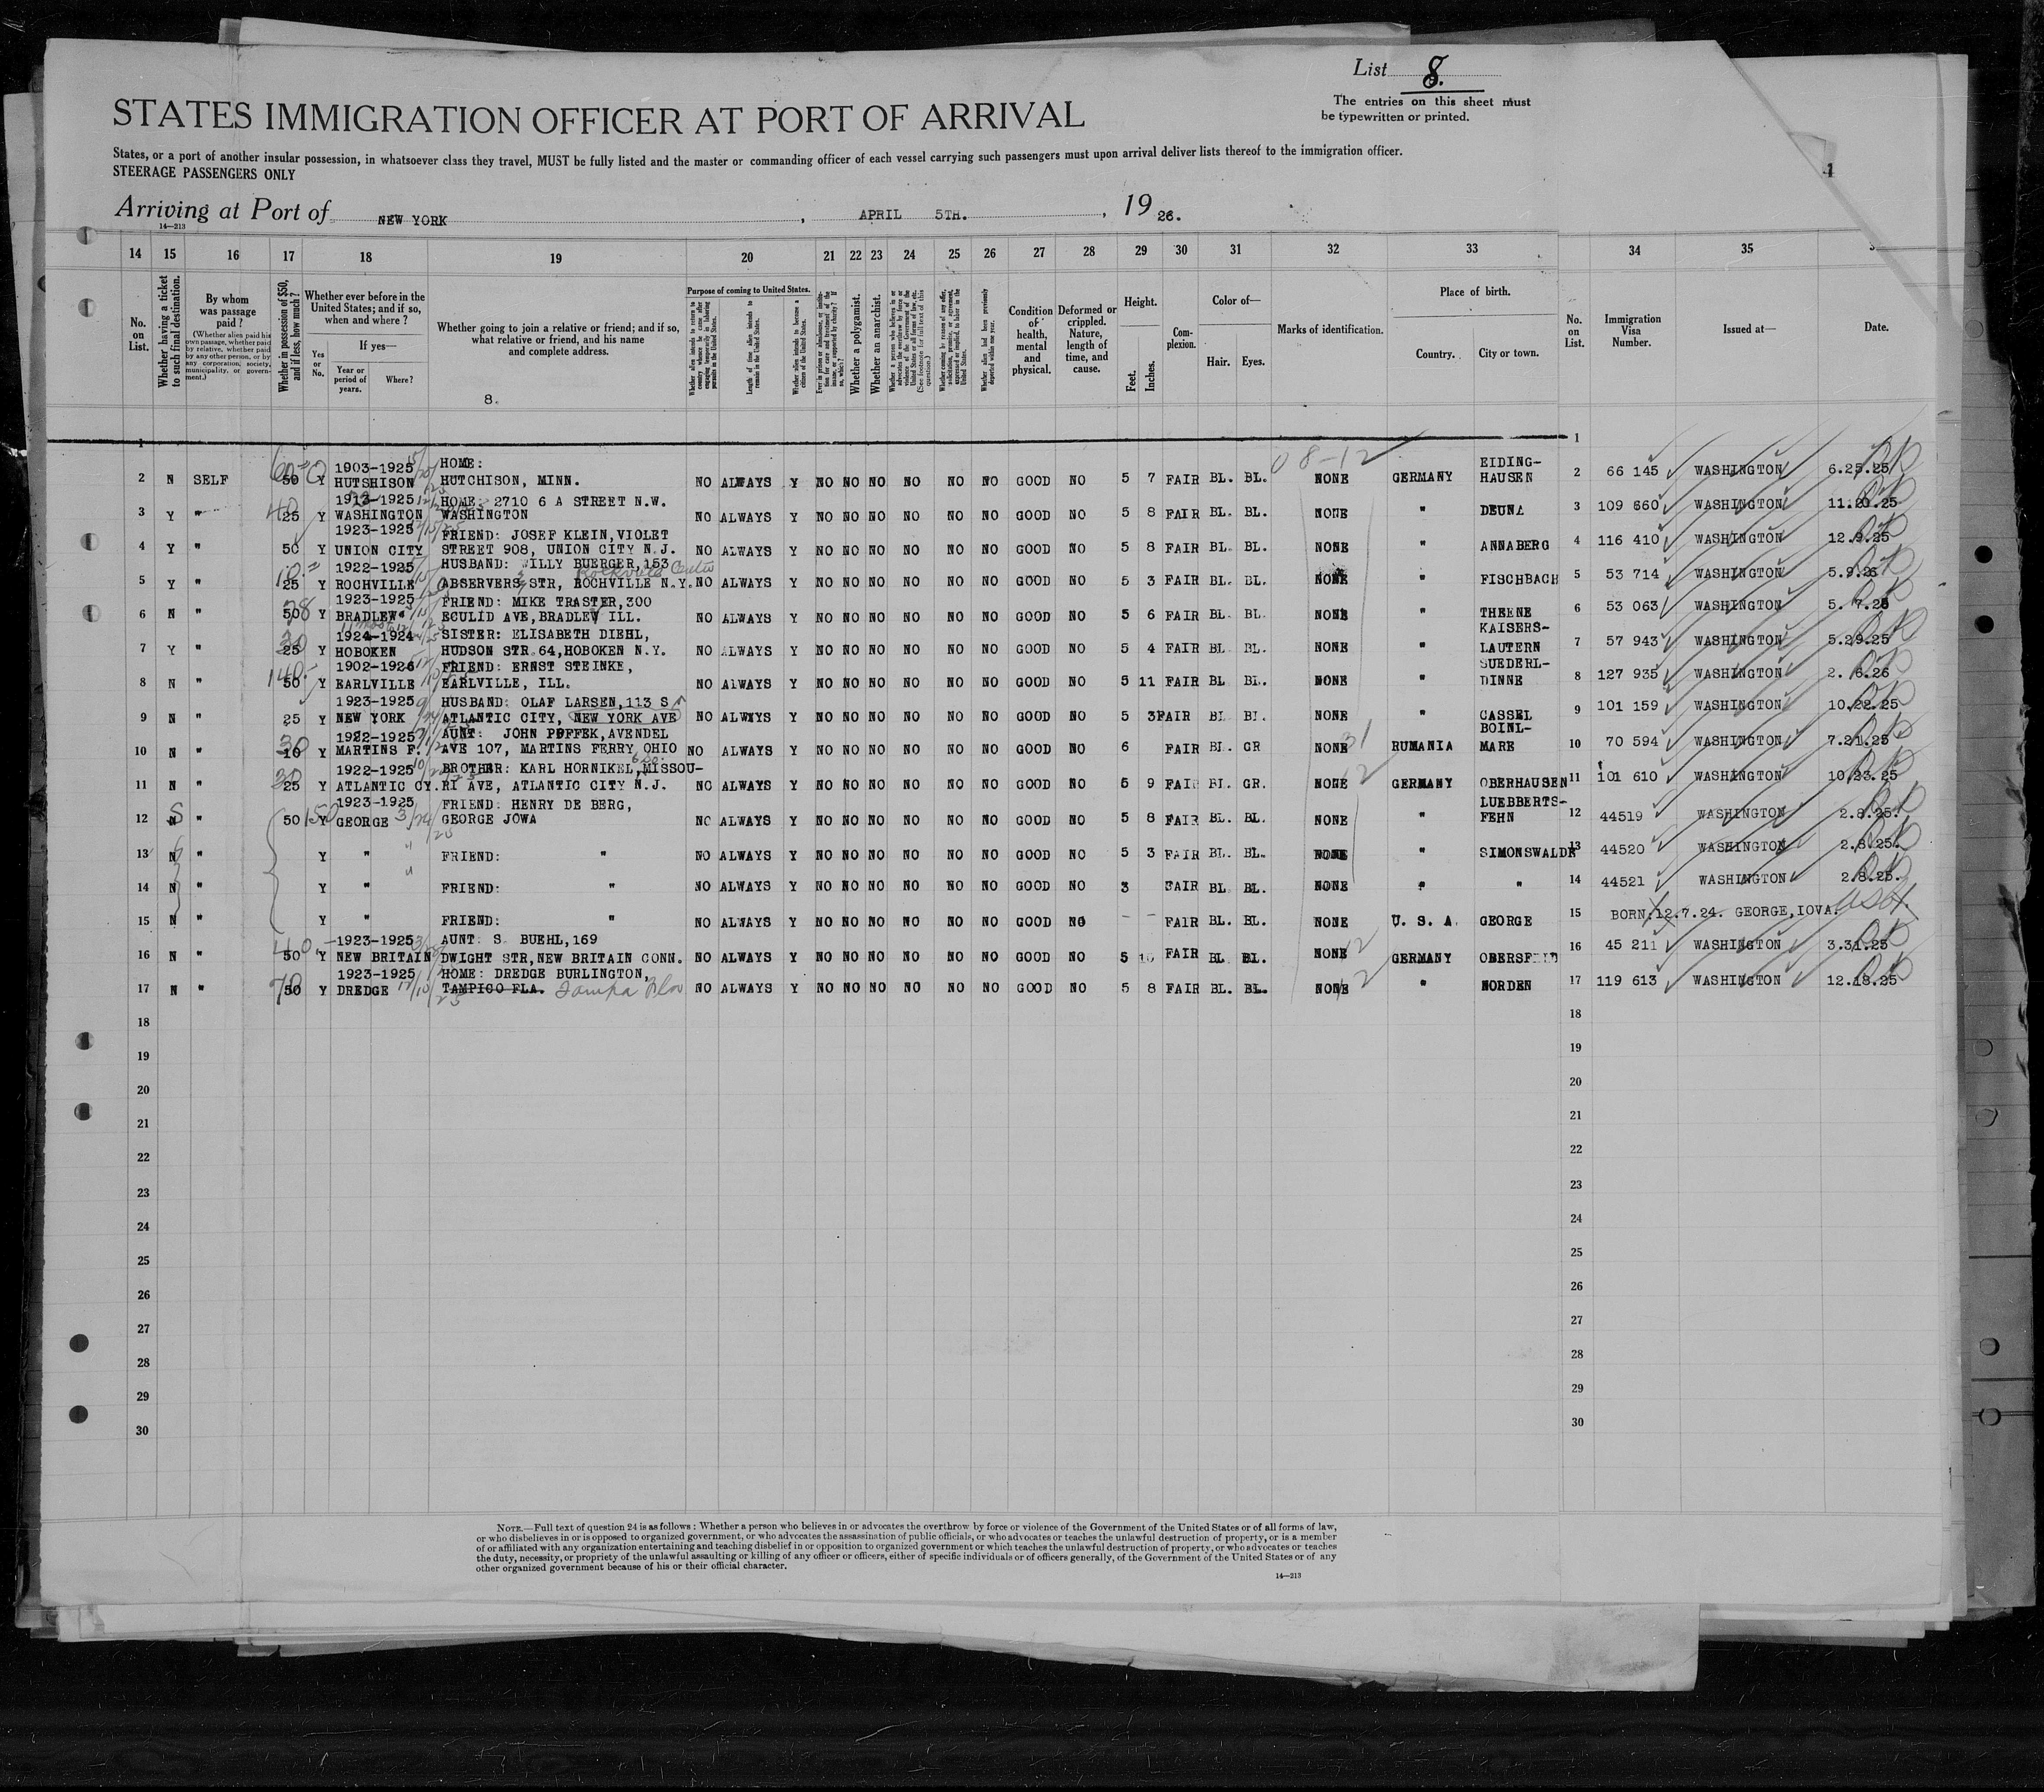 List 8.
The entries on this sheet must
be typewritten or printed.
STATES IMMIGRATION OFFICER AT PORT OF ARRIVAL
States, or a port of another insular possession, in whatsoever class they travel, MUST be fully listed and the master or commanding officer of each vessel carrying such passengers must upon arrival deliver lists thereof to the immigration officer.
STEERAGE PASSENGERS ONLY
Arriving at Port of NEW YORK, APRIL 5TH., 1926.
14—213
14 15 16 17 18 19 20 21 22 23 24 25 26 27 28 29 30 31 32 33 34 35
No. on List.
Whether having a ticket to such final destination.
By whom was passage paid?
(Whether alien paid his own passage, whether paid by relative, whether paid by any other person, or by any corporation, society, municipality, or government.)
Whether in possession of $50, and if less, how much?
Whether ever before in the United States; and if so, when and where?
Yes or No.
If yes—
Year or period of years.
Where?
Whether going to join a relative or friend; and if so, what relative or friend, and his name and complete address.
8.
Purpose of coming to United States.
Length of time alien intends to remain in the United States.
Whether alien intends to become a citizen of the United States.
Whether a polygamist.
Whether an anarchist.
Condition of health, mental and physical.
Deformed or crippled. Nature, length of time, and cause.
Height.
Feet.
Inches.
Complexion.
Color of—
Hair.
Eyes.
Marks of identification.
Place of birth.
Country.
City or town.
No. on List.
Immigration Visa Number.
Issued at—
Date.
1 1
08-12
1903-1925 HOME: EIDING-
2 N SELF 50 Y HUTSHISON HUTCHISON, MINN. NO ALWAYS Y NO NO NO NO NO NO GOOD NO 5 7 FAIR BL. BL. NONE GERMANY HAUSEN 2 66 145 WASHINGTON 6.25.25
1913-1925 HOME: 2710 6 A STREET N.W.
3 Y " 40 25 Y WASHINGTON WASHINGTON NO ALWAYS Y NO NO NO NO NO NO GOOD NO 5 8 FAIR BL. BL. NONE " DEUNA 3 109 660 WASHINGTON 11.20.25
1923-1925 FRIEND: JOSEF KLEIN, VIOLET
4 Y " 50 Y UNION CITY STREET 908, UNION CITY N.J. NO ALWAYS Y NO NO NO NO NO NO GOOD NO 5 8 FAIR BL. BL. NONE " ANNABERG 4 116 410 WASHINGTON 12.9.25
1922-1925 HUSBAND: WILLY BUERGER, 153 Rockville Centre
5 Y " 25 Y ROCHVILLE OBSERVERS STR, ROCHVILLE N.Y. NO ALWAYS Y NO NO NO NO NO NO GOOD NO 5 3 FAIR BL. BL. NONE " FISCHBACH 5 53 714 WASHINGTON 5.9.26
1923-1925 FRIEND: MIKE TRASTER, 300
6 N " 50 Y BRADLEW ECULID AVE, BRADLEY ILL. NO ALWAYS Y NO NO NO NO NO NO GOOD NO 5 6 FAIR BL. BL. NONE " THEENE 6 53 063 WASHINGTON 5. 7.25
1924-1924 SISTER: ELISABETH DIEHL, KAISERS-
7 Y " 30 25 Y HOBOKEN HUDSON STR.64, HOBOKEN N.Y. NO ALWAYS Y NO NO NO NO NO NO GOOD NO 5 4 FAIR BL BL. NONE " LAUTERN 7 57 943 WASHINGTON 5.29.25
1902-1926 FRIEND: ERNST STEINKE, SUEDERL-
8 N " 140 50 Y EARLVILLE EARLVILLE, ILL. NO ALWAYS Y NO NO NO NO NO NO GOOD NO 5 11 FAIR BL BL. NONE " DINNE 8 127 935 WASHINGTON 2. 6.26
1923-1925 HUSBAND: OLAF LARSEN, 113 S
9 N " 25 Y NEW YORK ATLANTIC CITY, NEW YORK AVE NO ALWAYS Y NO NO NO NO NO NO GOOD NO 5 3 FAIR BL BL. NONE " CASSEL 9 101 159 WASHINGTON 10.22.25
1922-1925 AUNT: JOHN PFFFEK, AVENDEL BOINL-
10 N " 30 10 Y MARTINS F. AVE 107, MARTINS FERRY OHIO NO ALWAYS Y NO NO NO NO NO NO GOOD NO 6 FAIR BL. GR NONE 31 RUMANIA MARE 10 70 594 WASHINGTON 7.21.25
1922-1925 BROTHER: KARL HORNIKEL, MISSOU-
11 N " 30 25 Y ATLANTIC CY. RI AVE, ATLANTIC CITY N.J. NO ALWAYS Y NO NO NO NO NO NO GOOD NO 5 9 FAIR BL. GR. NONE 12 GERMANY OBERHAUSEN 11 101 610 WASHINGTON 10.23.25
1923-1925 FRIEND: HENRY DE BERG, LUEBBERTS-
12 N " 50 150 Y GEORGE GEORGE JOWA NO ALWAYS Y NO NO NO NO NO NO GOOD NO 5 8 FAIR BL. BL. NONE " FEHN 12 44519 WASHINGTON 2.8.25.
13 N " Y " FRIEND: " NO ALWAYS Y NO NO NO NO NO NO GOOD NO 5 3 FAIR BL. BL. NONE " SIMONSWALDE 13 44520 WASHINGTON 2.8.25.
14 N " Y " FRIEND: " NO ALWAYS Y NO NO NO NO NO NO GOOD NO 3 FAIR BL BL. NONE " " 14 44521 WASHINGTON 2.8.25.
15 N " Y " FRIEND: " NO ALWAYS Y NO NO NO NO NO NO GOOD NO - - FAIR BL. BL. NONE U. S. A. GEORGE 15 BORN:12.7.24. GEORGE, IOVA.
1923-1925 AUNT: S. BUEHL, 169
16 N " 40 50 Y NEW BRITAIN DWIGHT STR, NEW BRITAIN CONN. NO ALWAYS Y NO NO NO NO NO NO GOOD NO 5 10 FAIR BL BL. NONE 12 GERMANY OBERSFELD 16 45 211 WASHINGTON 3.31.25
1923-1925 HOME: DREDGE BURLINGTON,
17 N " 70 50 Y DREDGE TAMPICO FLA. Tampa Fla NO ALWAYS Y NO NO NO NO NO NO GOOD NO 5 8 FAIR BL. BL. NONE 12 " NORDEN 17 119 613 WASHINGTON 12.18.25
18 18
19 19
20 20
21 21
22 22
23 23
24 24
25 25
26 26
27 27
28 28
29 29
30 30
NOTE.—Full text of question 24 is as follows: Whether a person who believes in or advocates the overthrow by force or violence of the Government of the United States or of all forms of law,
or who disbelieves in or is opposed to organized government, or who advocates the assassination of public officials, or who advocates or teaches the unlawful destruction of property, or is a member
of or affiliated with any organization entertaining and teaching disbelief in or opposition to organized government or which teaches the unlawful destruction of property, or who advocates or teaches
the duty, necessity, or propriety of the unlawful assaulting or killing of any officer or officers, either of specific individuals or of officers generally, of the Government of the United States or of any
other organized government because of his or their official character.
14—213